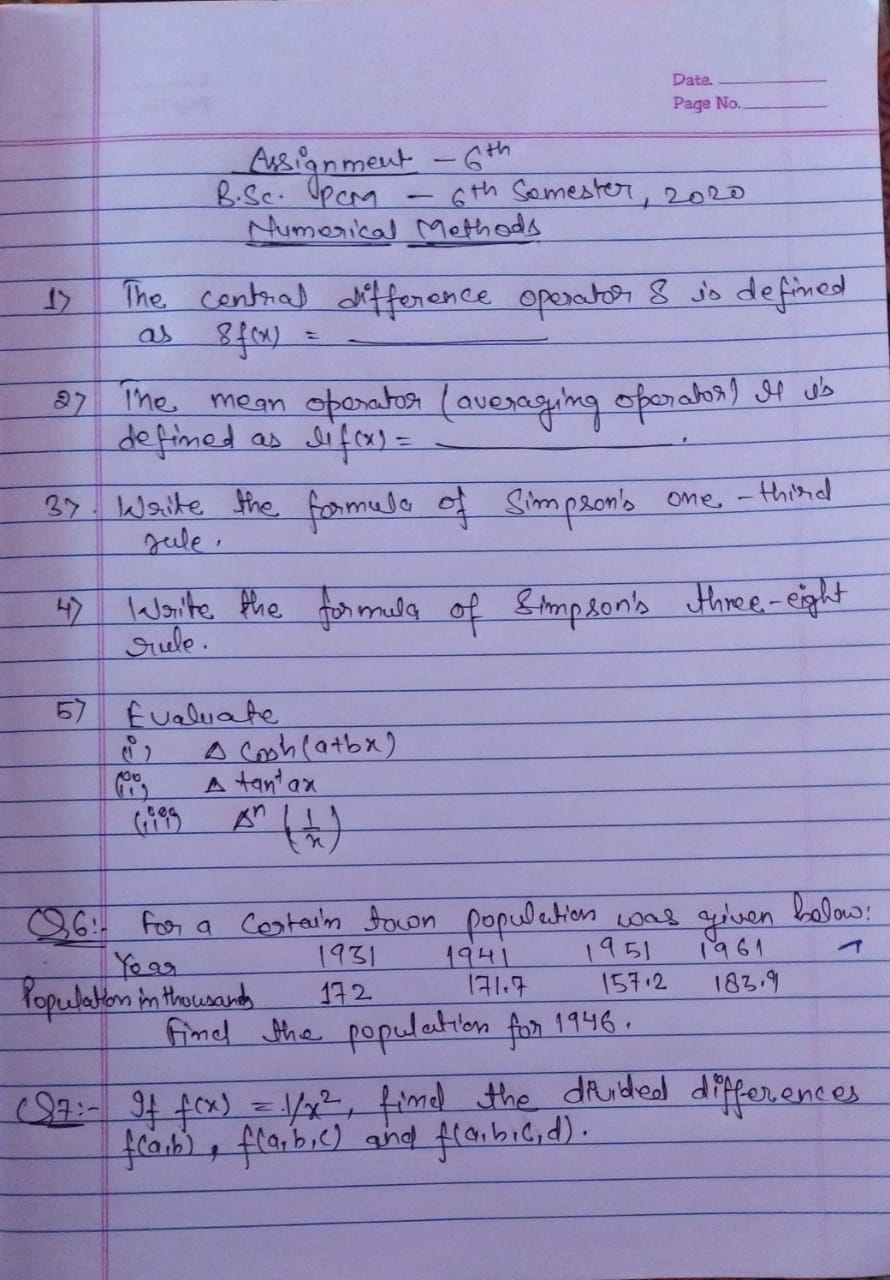 Date.
Page No.
Assignment - 6th
B.Sc. PCM - 6th Semester, 2020
Numerical Methods
1> The central difference operator δ is defined
as δf(x) =
2> The mean operator (averaging operator) μ is
defined as μf(x) = .
3> Write the formula of Simpson's one-third
rule.
4> Write the formula of Simpson's three-eight
rule.
5> Evaluate
(i) Δ Cosh(a+bx)
(ii) Δ tan⁻¹ax
(iii) Δⁿ (1/x)
Q6:- For a Certain town population was given below:
Year 1931 1941 1951 1961
Population in thousands 172 171.7 157.2 183.9
Find the population for 1946.
Q7:- If f(x) = 1/x², find the divided differences
f(a,b), f(a,b,c) and f(a,b,c,d).